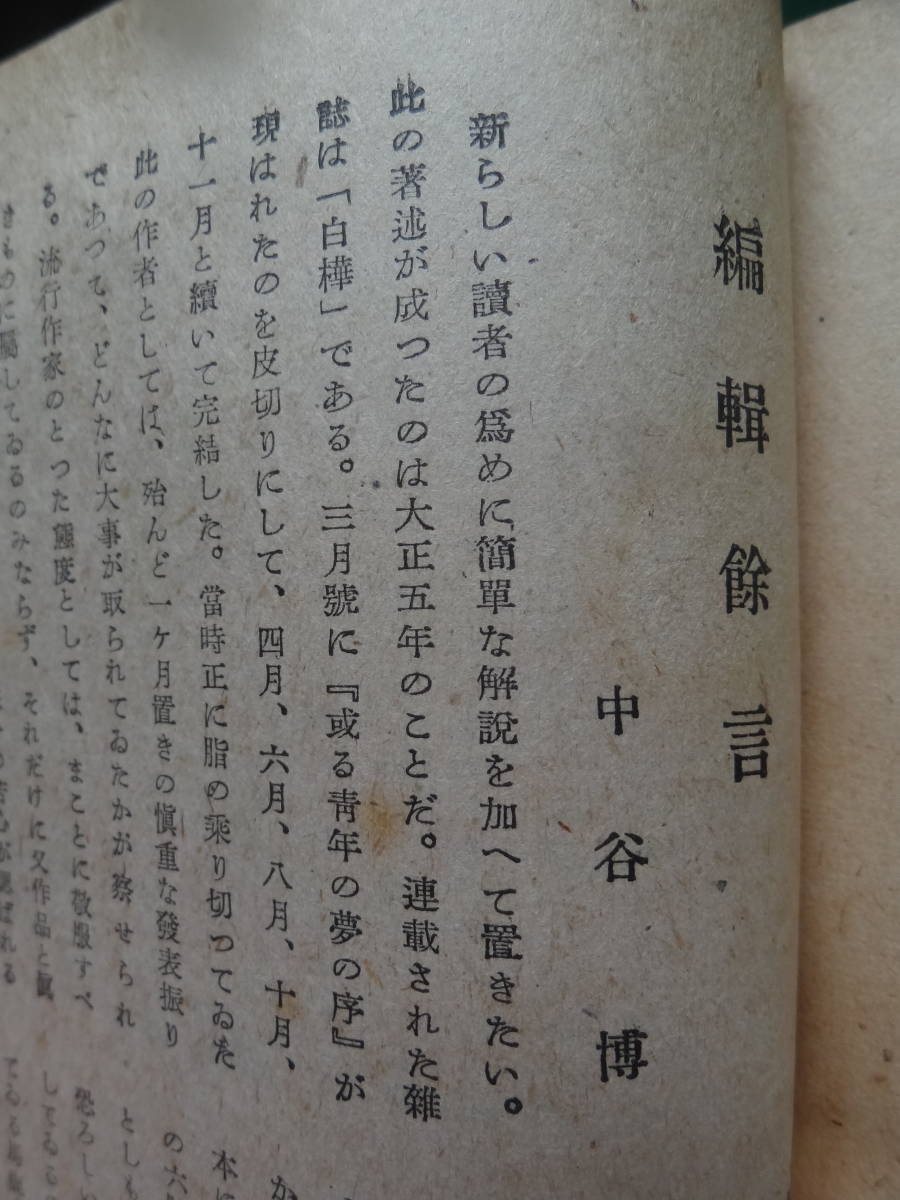 編輯餘言
中谷博
新らしい讀者の爲めに簡單な解說を加へて置きたい。
此の著述が成つたのは大正五年のことだ。連載された雜
誌は「白樺」である。三月號に『或る靑年の夢の序』が
現はれたのを皮切りにして、四月、六月、八月、十月、
十一月と續いて完結した。當時正に脂の乘り切つてゐた
此の作者としては、殆んど一ケ月置きの愼重な發表振り
であつて、どんなに大事が取られてゐたかが察せられ
る。流行作家のとつた態度としては、まことに敬服すべ
きものに屬してゐるのみならず、それだけに又作品と眞
か
本に
の六
としも
恐ろしい
してゐる